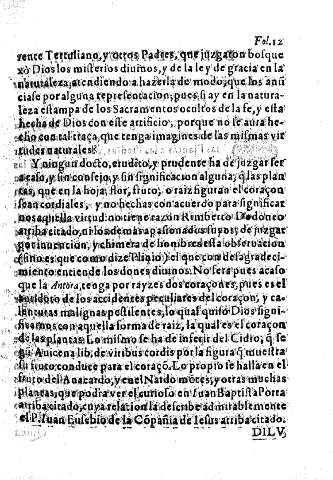 Fol.12
rente Tertuliano, y otros Padres, que juzgaron bosque
xò Dios los misterios diuinos, y de la ley de gracia en la
naturaleza, atendiendo a hazerla de modo, que los anũ
ciase por alguna representacion; pues si ay en la natura-
leza estampa de los Sacramentos ocultos de la fe, y està
hecha de Dios con este artificio, porque no se aura he-
cho con tal traça, que tenga imagines de las mismas vir
tudes naturales?
Y ningun docto, erudito, y prudente ha de juzgar ser
acaso, y sin consejo, y sin significacion alguna, q̃ las plan
tas, que en la hoja, flor, fruto, o raiz figuran el coraçon
sean cordiales, y no hechas con acuerdo para significar
nos aquella virtud: no tiene razon Rimberto Dodoneo
arriba citado, ni los demas apasionados suyos, de juzgar
por inuencion, y chimera de hombres esta obseruacion
(sino es que como dize Plinio) el que con desagradeci-
miento entiende los dones diuinos. No serà pues acaso
que la Antora, tenga por rayzes dos coraçones, pues es el
antidoto de los accidentes peculiares del coraçon, y ca-
lenturas malignas pestilentes, lo qual quiso Dios signi-
ficarnos con aquella forma de raiz, la qual es el coraçon
de las plantas. Lo mismo se ha de inferir del Cidro, q̃ se
gũ Auicena lib. de viribus cordis por la figura q̃ muestra
su fruto conduce para el coraçõ. Lo propio se halla en el
fruto del Anacardo, y en el Nardo mõtes, y otras muchas
plantas, que podrà ver el curioso en Iuan Baptista Porta
arriba citado, cuya relation la describe admirablemente
el P. Iuan Eusebio de la Cõpañia de Iesus arriba citado.
DILV,